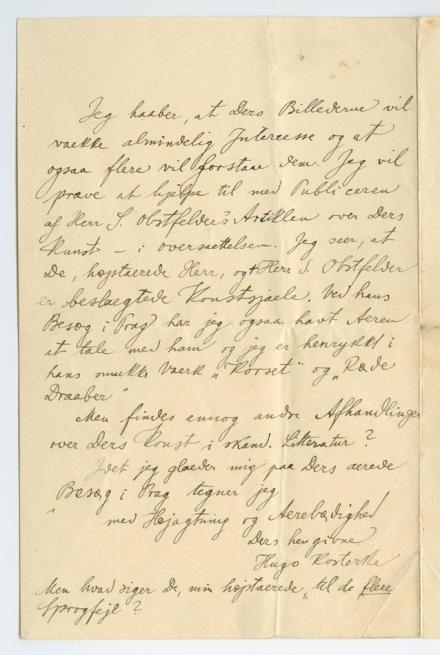 Jeg haaber, at Ders Billederne vil
vække almindelig Interesse og at
ogsaa flere vil forstaae dem. Jeg vil
prøve at hjælpe til med Publiceren
af Herr S. Obstfelder's Artiklen over Ders
Kunst – i oversættelsen. Jeg seer, at
De, højstærede Herr, og Herr S. Obstfelder
er beslægtede Konstsjæle. Ved hans
Besøg i Prag har jeg ogsaa havt Æren
at tale med ham og jeg er henrykkt i
hans smukke Værk „Korset" og „Røde
Draaber"
Men findes ennog andre Afhandlinger
over Ders Konst i skand. Litteratur?
Idet jeg glæder mig paa Ders ærede
Besøg i Prag tegner jeg
med Højagtning og Ærebødighed
Ders hengivne
Hugo Kosterka
Men hvad siger De, min højstærede, til de flere
Sprogfejl?